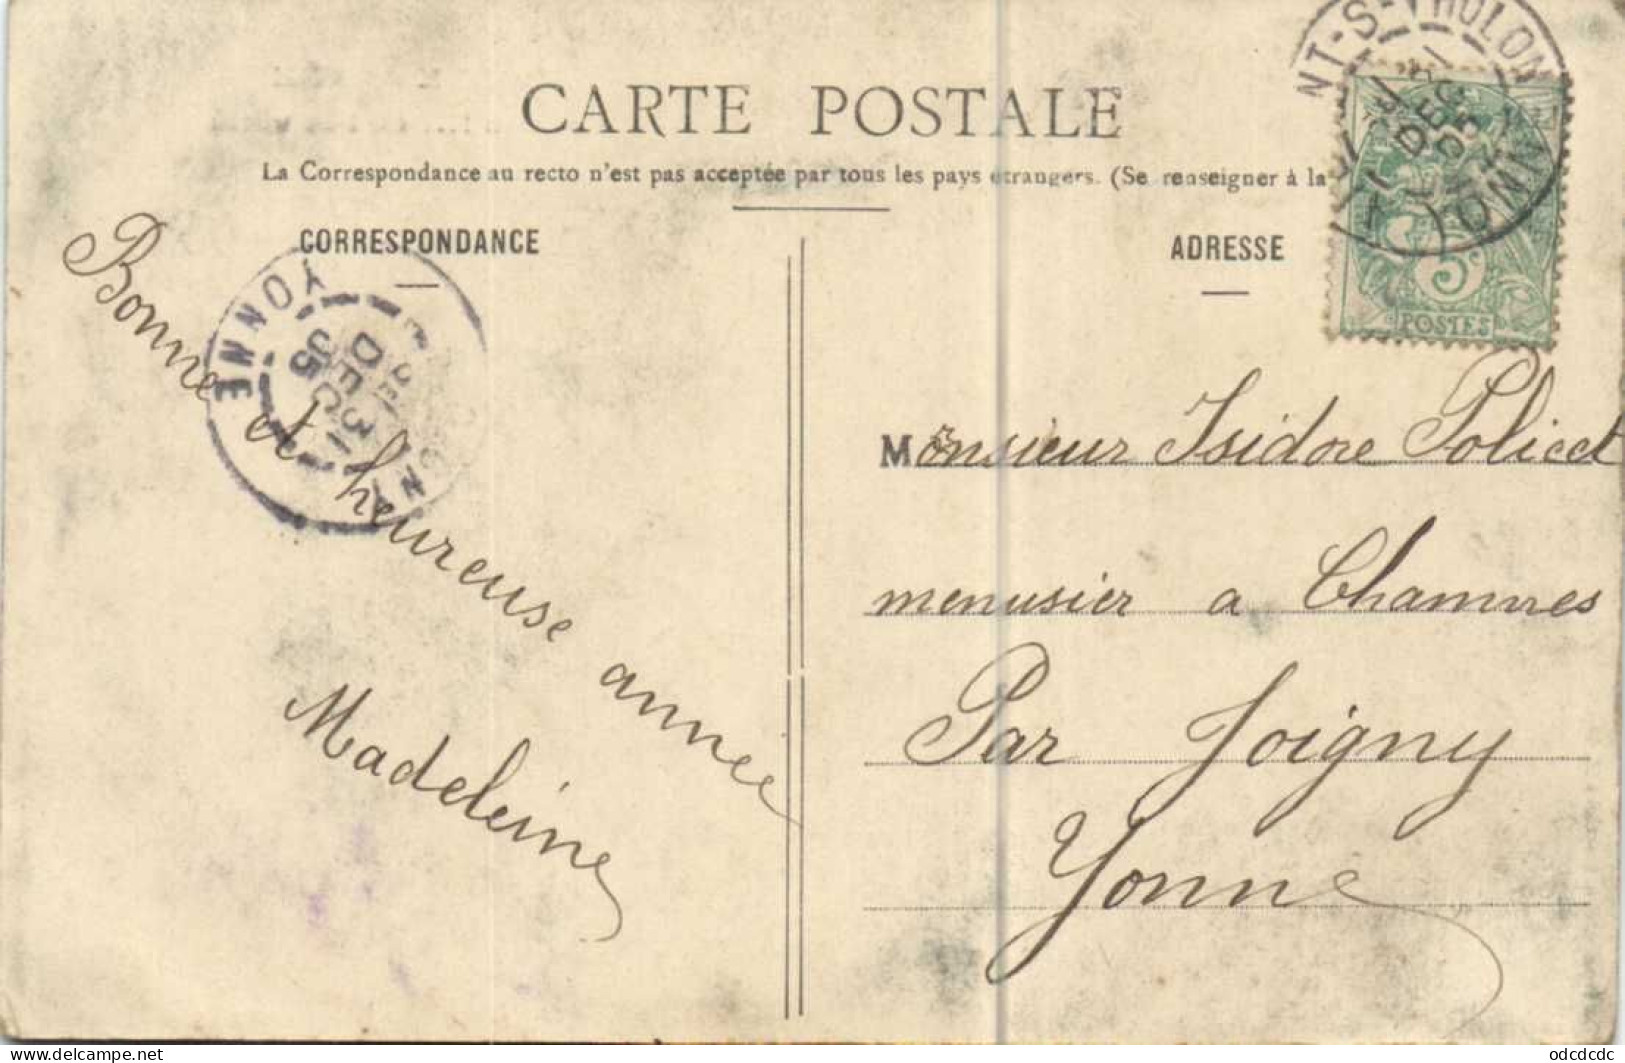 CARTE POSTALE
La Correspondance au recto n'est pas acceptée par tous les pays étrangers. (Se renseigner à la
CORRESPONDANCE
ADRESSE
Bonne et heureuse année
Madeleine
Monsieur Isidore Policet
menusier a Chamvres
Par Joigny
Yonne
NT-S-THOLON
31
DEC
05
YONNE
5c
POSTES
YONNE
DEC 31
05
delcampe.net
odcdcdc